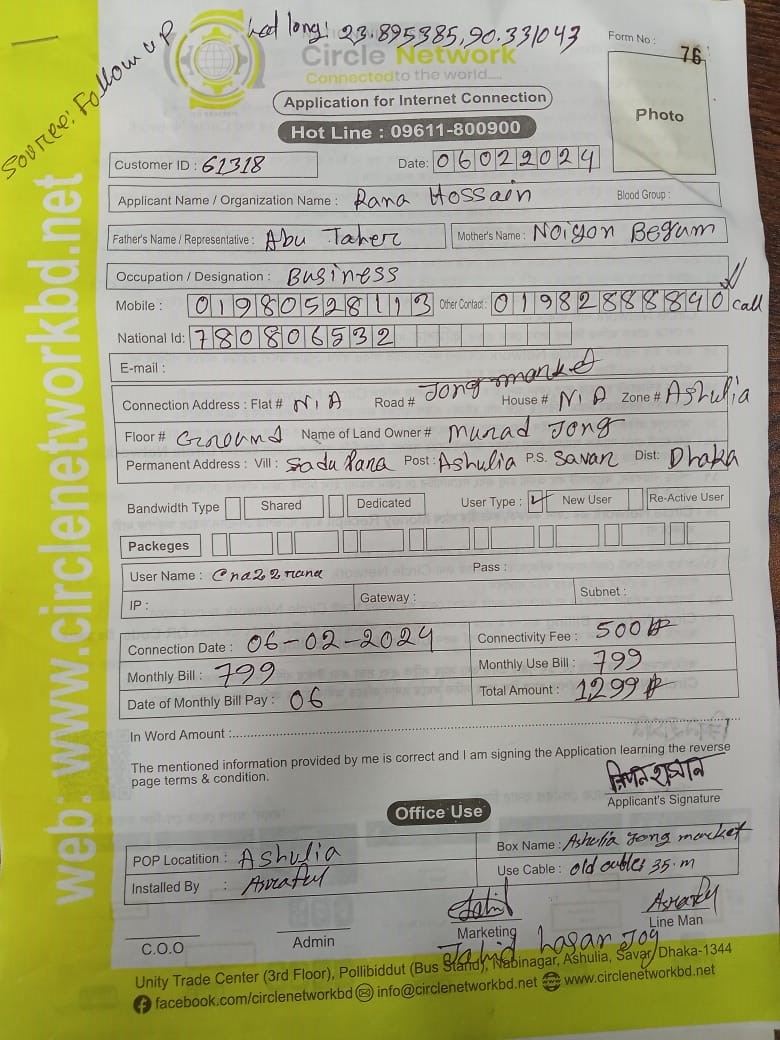 Source: Follow up
Lat long: 23.895385,90.331043
Circle Network
Connected to the world....
Form No :
76
Photo
Application for Internet Connection
Hot Line : 09611-800900
Customer ID : 61318
Date: 06022024
Applicant Name / Organization Name : Rana Hossain Blood Group :
Father's Name / Representative : Abu Taher Mother's Name : Noiyon Begum
Occupation / Designation : Business
Mobile : 01980528113 Other Contact : 01982888840 call
National Id: 780806532
E-mail :
Connection Address : Flat # N.A Road # Jong market House # N.A Zone # Ashulia
Floor # Ground Name of Land Owner # Murad Jong
Permanent Address : Vill : Sadu Para Post : Ashulia P.S. Savar Dist: Dhaka
Bandwidth Type Shared Dedicated User Type : New User Re-Active User
Packeges
User Name : Cna22rana Pass :
IP : Gateway : Subnet :
Connection Date : 06-02-2024 Connectivity Fee : 500৳
Monthly Bill : 799 Monthly Use Bill : 799
Date of Monthly Bill Pay : 06 Total Amount : 1299৳
In Word Amount :
The mentioned information provided by me is correct and I am signing the Application learning the reverse
page terms & condition.
Applicant's Signature
Office Use
POP Locatition : Ashulia Box Name : Ashulia Jong market
Installed By : Asraful Use Cable : old cables 35.m
C.O.O Admin Marketing Line Man
Jahid hasan Joy
Unity Trade Center (3rd Floor), Pollibiddut (Bus Stand), Nabinagar, Ashulia, Savar, Dhaka-1344
facebook.com/circlenetworkbd info@circlenetworkbd.net www.circlenetworkbd.net
web: www.circlenetworkbd.net